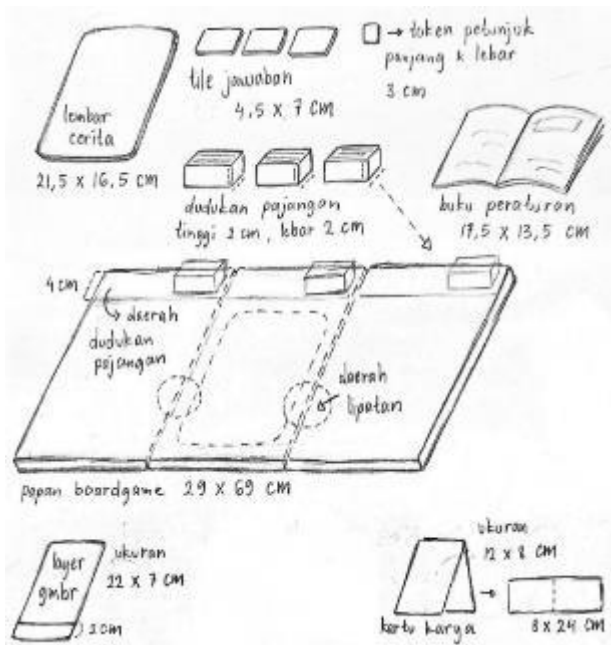 lembar
cerita
21,5 x 16,5 cm
tile jawaban
4,5 x 7 cm
→ token petunjuk
panjang & lebar
3 cm
dudukan pajangan
tinggi 2 cm, lebar 2 cm
buku peraturan
19,5 x 13,5 cm
4 cm
→ daerah
dudukan
pajangan
daerah
lipatan
papan boardgame 29 x 69 cm
layer
gmbr
ukuran
22 x 7 cm
2 cm
ukuran
12 x 8 cm
kartu karya
8 x 24 cm